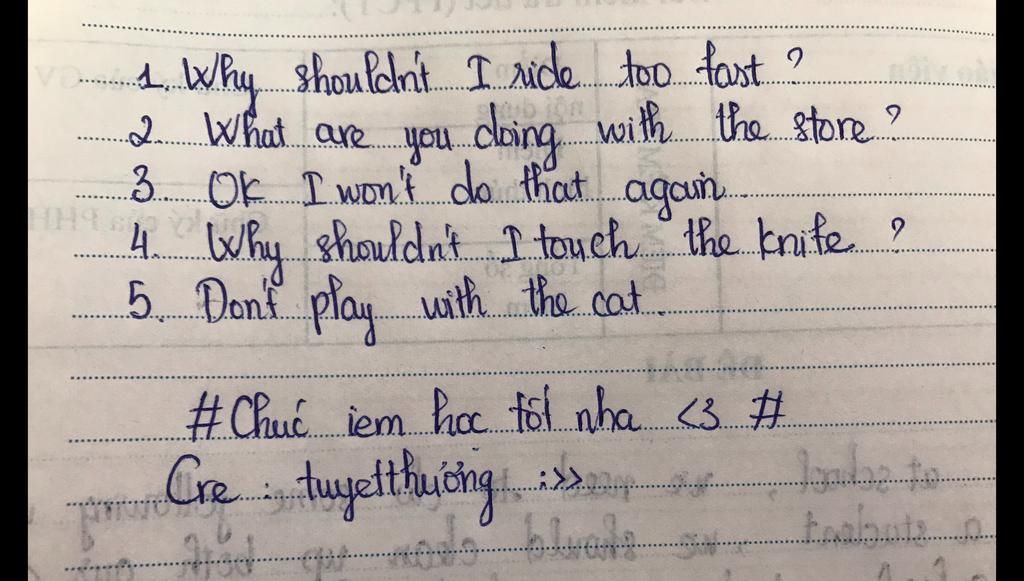 1. Why shouldn't I ride too fast ?
2. What are you doing with the store ?
3. Ok I won't do that again
4. Why shouldn't I touch the knife ?
5. Don't play with the cat.
# Chúc iem học tốt nha <3 #
Cre : tuyetthương :>>